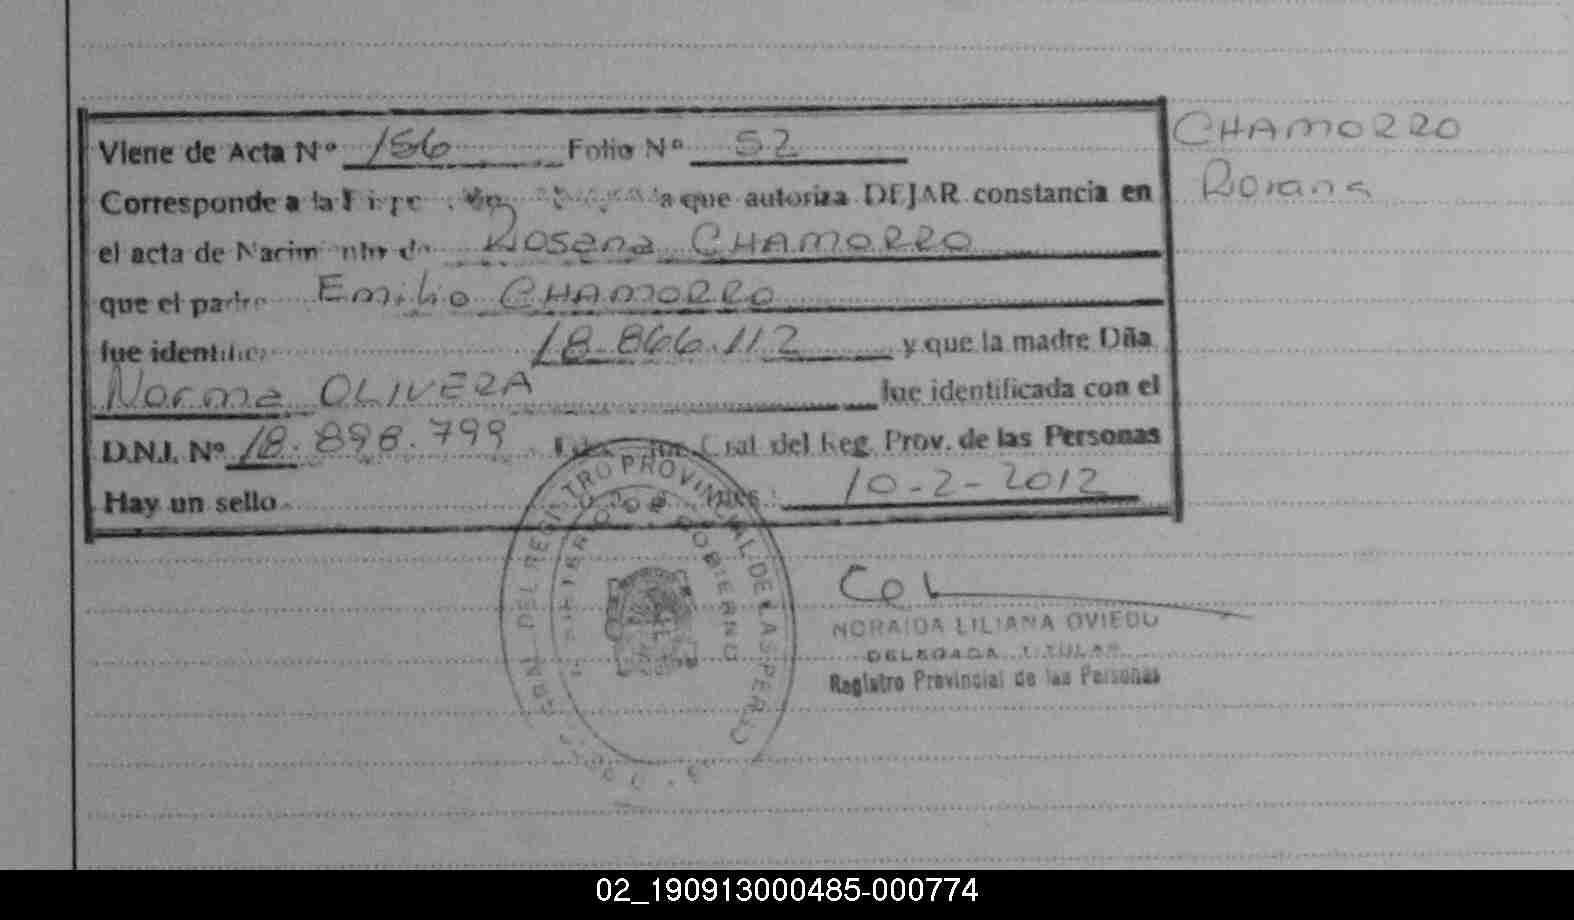 Viene de Acta Nº 156 Folio Nº 52
CHAMORRO
Rosana
Corresponde a la que autoriza DEJAR constancia en
el acta de Nacimiento de Rosana CHAMORRO
que el padre Emilio CHAMORRO
fue identific 18.866.112 y que la madre Dña
Norma OLIVERA fue identificada con el
D.N.I. Nº 18.898.799 Gral del Reg. Prov. de las Personas
Hay un sello 10-2-2012
GRAL. DEL REGISTRO PROVINCIAL DE LAS PERS
MINISTERIO DE GOBIERNO
NORAIDA LILIANA OVIEDO
DELEGADA TITULAR
Registro Provincial de las Personas
02_190913000485-000774